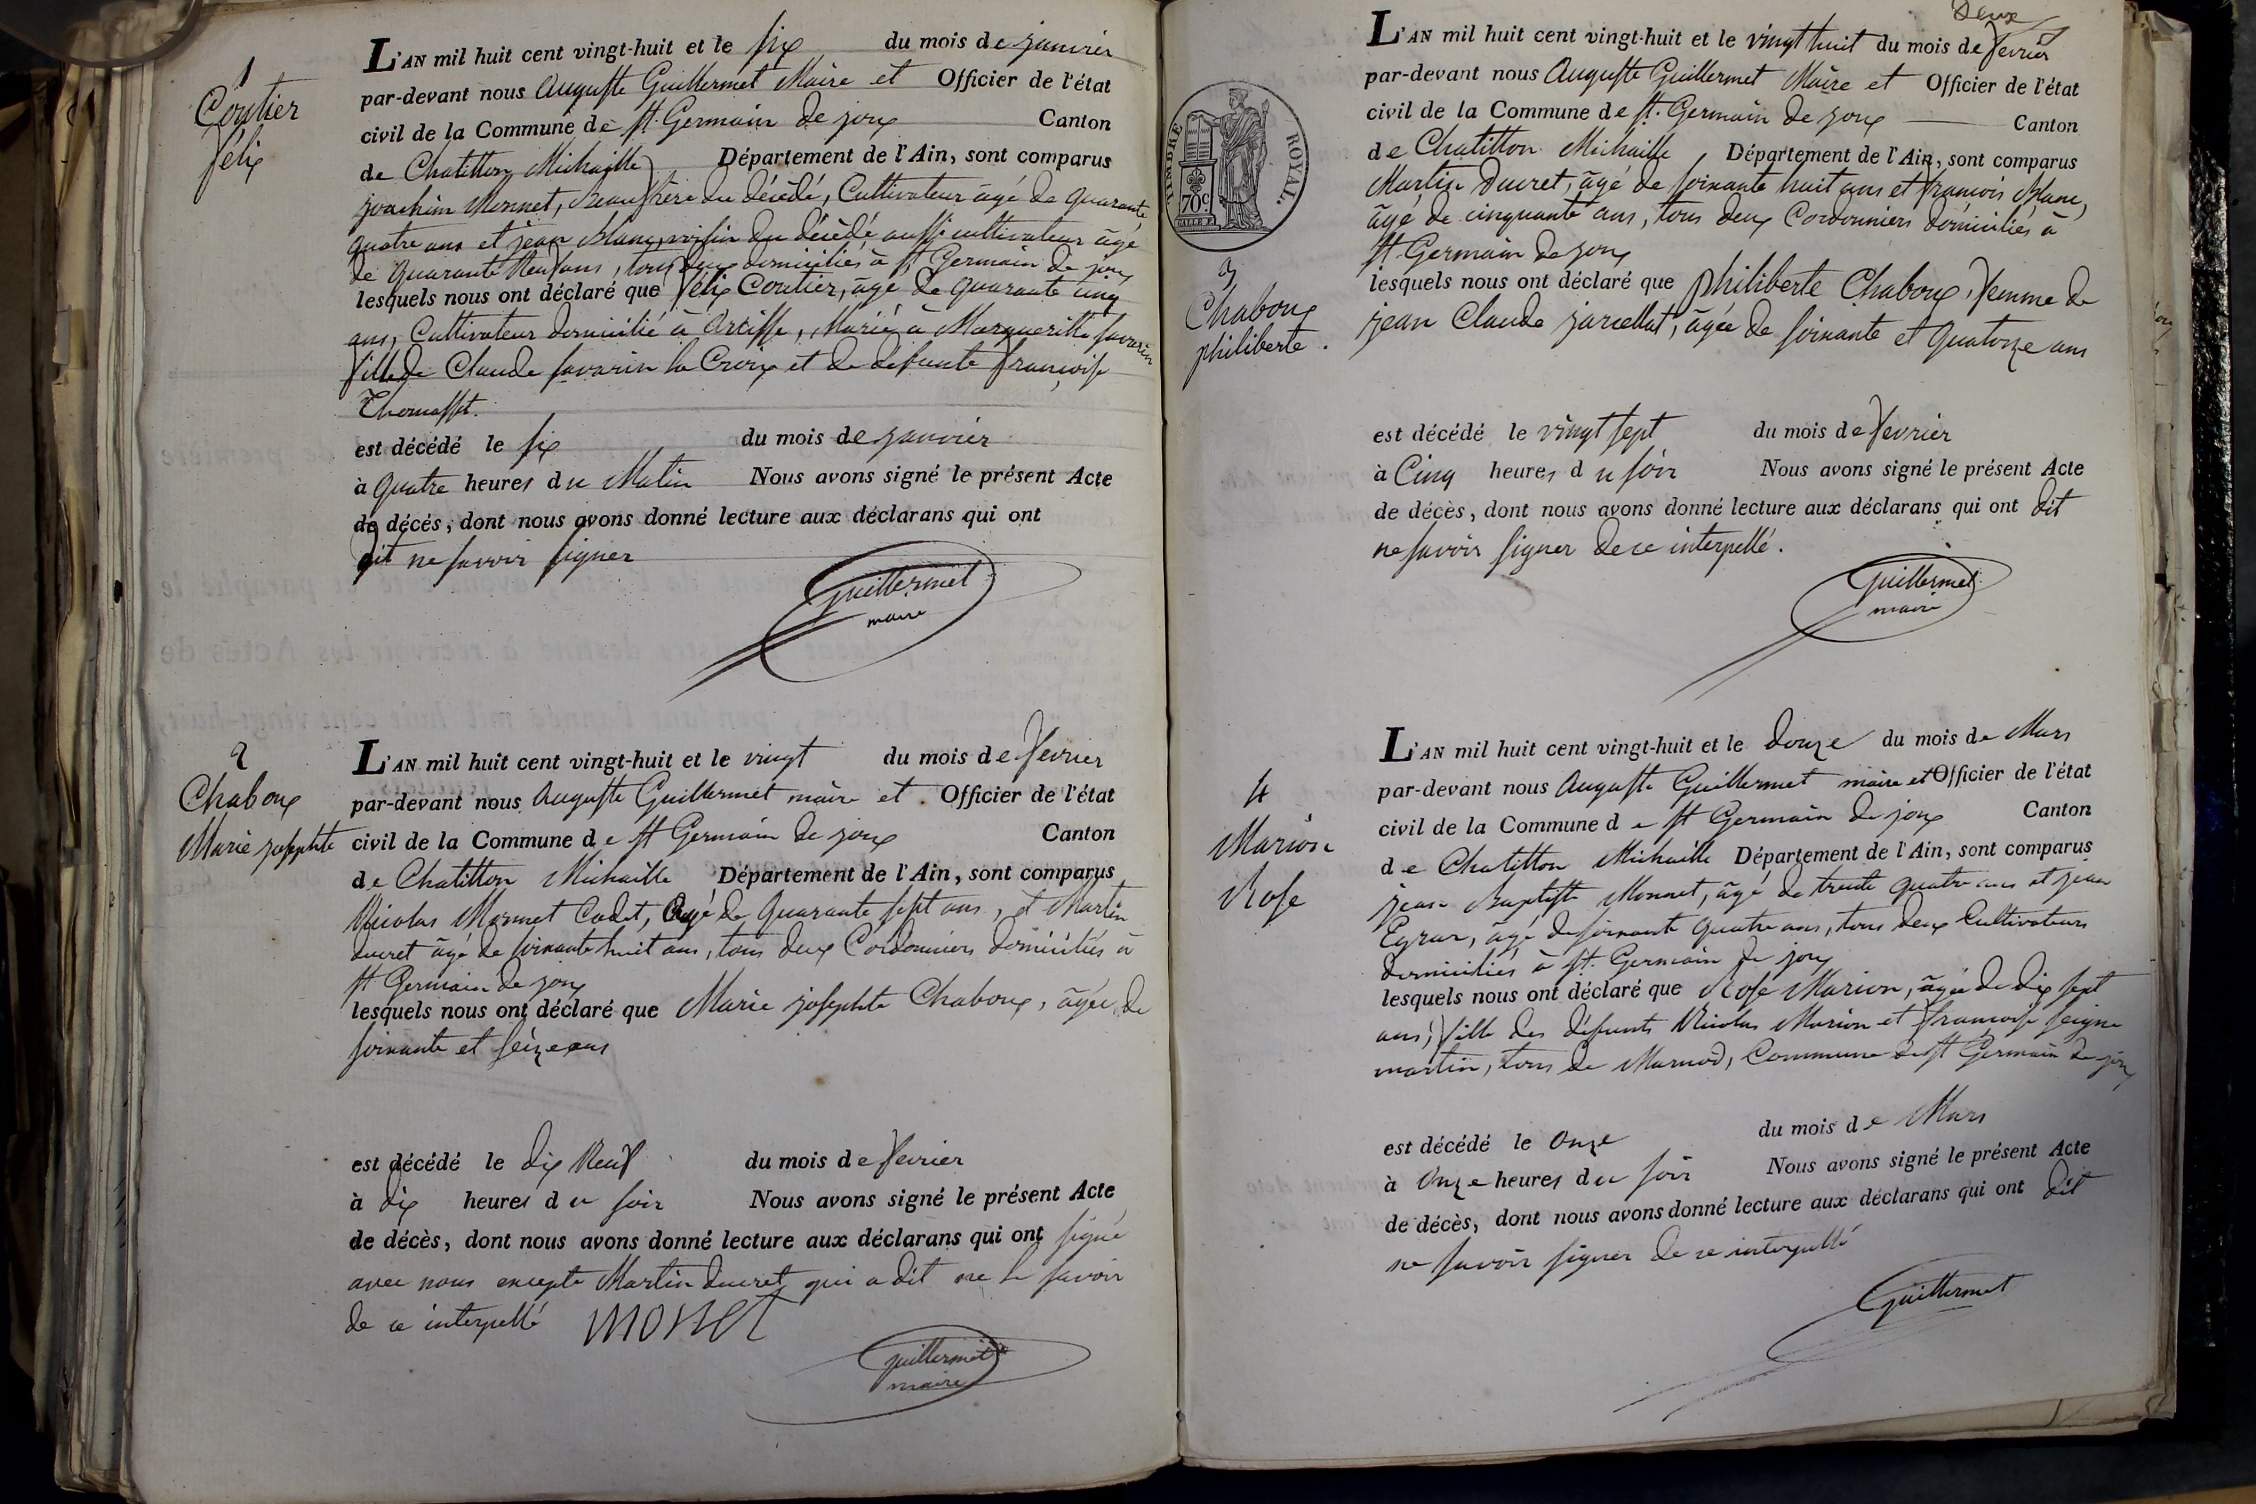 1
Coutier
félix
L'AN mil huit cent vingt-huit et le six du mois de janvier
par-devant nous Auguste Guillermet Maire et Officier de l'état
civil de la Commune de st. Germain de joux Canton
de Chatillon Michaille Département de l'Ain, sont comparus
joachim Monnet, beaufrère du décédé, Cultivateur âgé de quarante
quatre ans et jean Blanc, voisin du décédé aussi cultivateur âgé
de quarante Neuf ans, tous deux domiciliés à st Germain de joux
lesquels nous ont déclaré que félix Coutier, âgé de quarante cinq
ans, Cultivateur domicilié à , Marié à Margueritte savarin
fille de Claude savarin la Croix et de defunte françoise
Thomasset.
est décédé le six du mois de janvier
à quatre heures du Matin Nous avons signé le présent Acte
de décès, dont nous avons donné lecture aux déclarans qui ont
dit ne savoir signer
Guillermet
maire
2
Chaboux
Marie josephte
L'AN mil huit cent vingt-huit et le vingt du mois de fevrier
par-devant nous Auguste Guillermet maire et Officier de l'état
civil de la Commune de st Germain de joux Canton
de Chatillon Michaille Département de l'Ain, sont comparus
Nicolas Monnet Cadet, Agé de quarante sept ans, et Martin
ducret âgé de soixante huit ans, tous deux Cordonniers domiciliés à
st Germain de joux
lesquels nous ont déclaré que Marie josephte Chaboux, âgée de
soixante et seize ans
est décédé le dix Neuf du mois de fevrier
à dix heures du soir Nous avons signé le présent Acte
de décès, dont nous avons donné lecture aux déclarans qui ont signé
avec nous excepté Martin ducret qui a dit ne le savoir
de ce interpellé monet
Guillermet
maire
deux
TIMBRE ROYAL.
70c
3
Chaboux
philiberte.
L'AN mil huit cent vingt-huit et le vingt huit du mois de fevrier
par-devant nous Auguste Guillermet Maire et Officier de l'état
civil de la Commune de st. Germain de joux Canton
de Chatillon Michaille Département de l'Ain, sont comparus
Martin Ducret, âgé de soixante huit ans et francois Blanc,
âgé de cinquante ans, tous deux Cordonniers domiciliés à
st Germain de joux
lesquels nous ont déclaré que philiberte Chaboux, femme de
jean Claude jarcellat, âgée de soixante et quatorze ans
est décédé le vingt sept du mois de fevrier
à Cinq heures du soir Nous avons signé le présent Acte
de décès, dont nous avons donné lecture aux déclarans qui ont dit
ne savoir signer de ce interpellé.
Guillermet
maire
4
Marion
Rose
L'AN mil huit cent vingt-huit et le douze du mois de Mars
par-devant nous Auguste Guillermet maire et Officier de l'état
civil de la Commune de st Germain de joux Canton
de Chatillon Michaille Département de l'Ain, sont comparus
jean Baptiste Monnet, âgé de trente quatre ans et jean
, âgé de soixante quatre ans, tous deux Cultivateurs
domiciliés à st. Germain de joux
lesquels nous ont déclaré que Rose Marion, âgée de dix sept
ans, fille des défunts Nicolas Marion et françoise seigne
martin, tous de Marnod, Commune de st Germain de joux
est décédé le onze du mois de Mars
à onze heures du soir Nous avons signé le présent Acte
de décès, dont nous avons donné lecture aux déclarans qui ont dit
ne savoir signer de ce interpellé
Guillermet